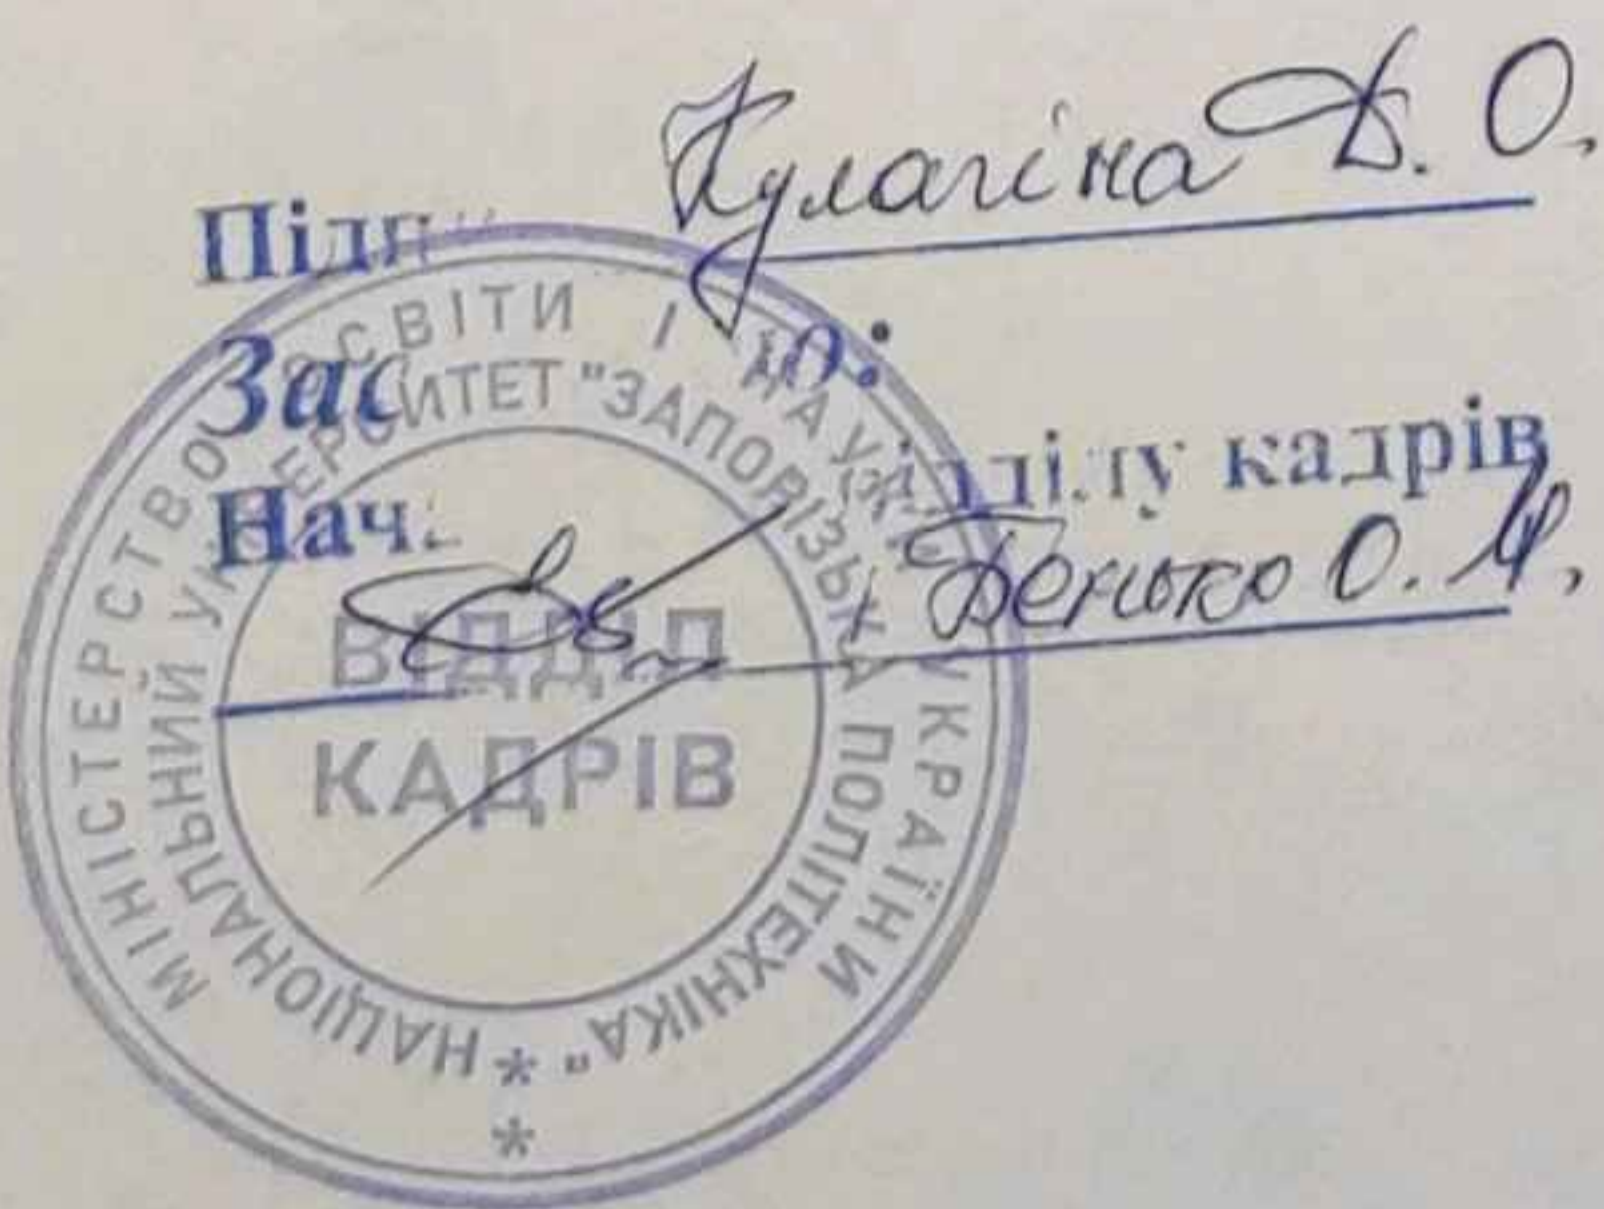 Кулагіна Д. О.
Підп
Зас ю:
Нач. відділу кадрів
Бенько О. М.
МІНІСТЕРСТВО ОСВІТИ І НАУКИ УКРАЇНИ
* НАЦІОНАЛЬНИЙ УНІВЕРСИТЕТ "ЗАПОРІЗЬКА ПОЛІТЕХНІКА" *
ВІДДІЛ
КАДРІВ